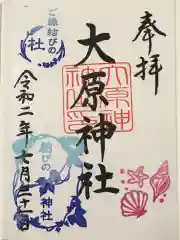 奉拝
大原神社
大原神社之印
ご縁結びの
社
令和二年七月二十一日
結びの
神社